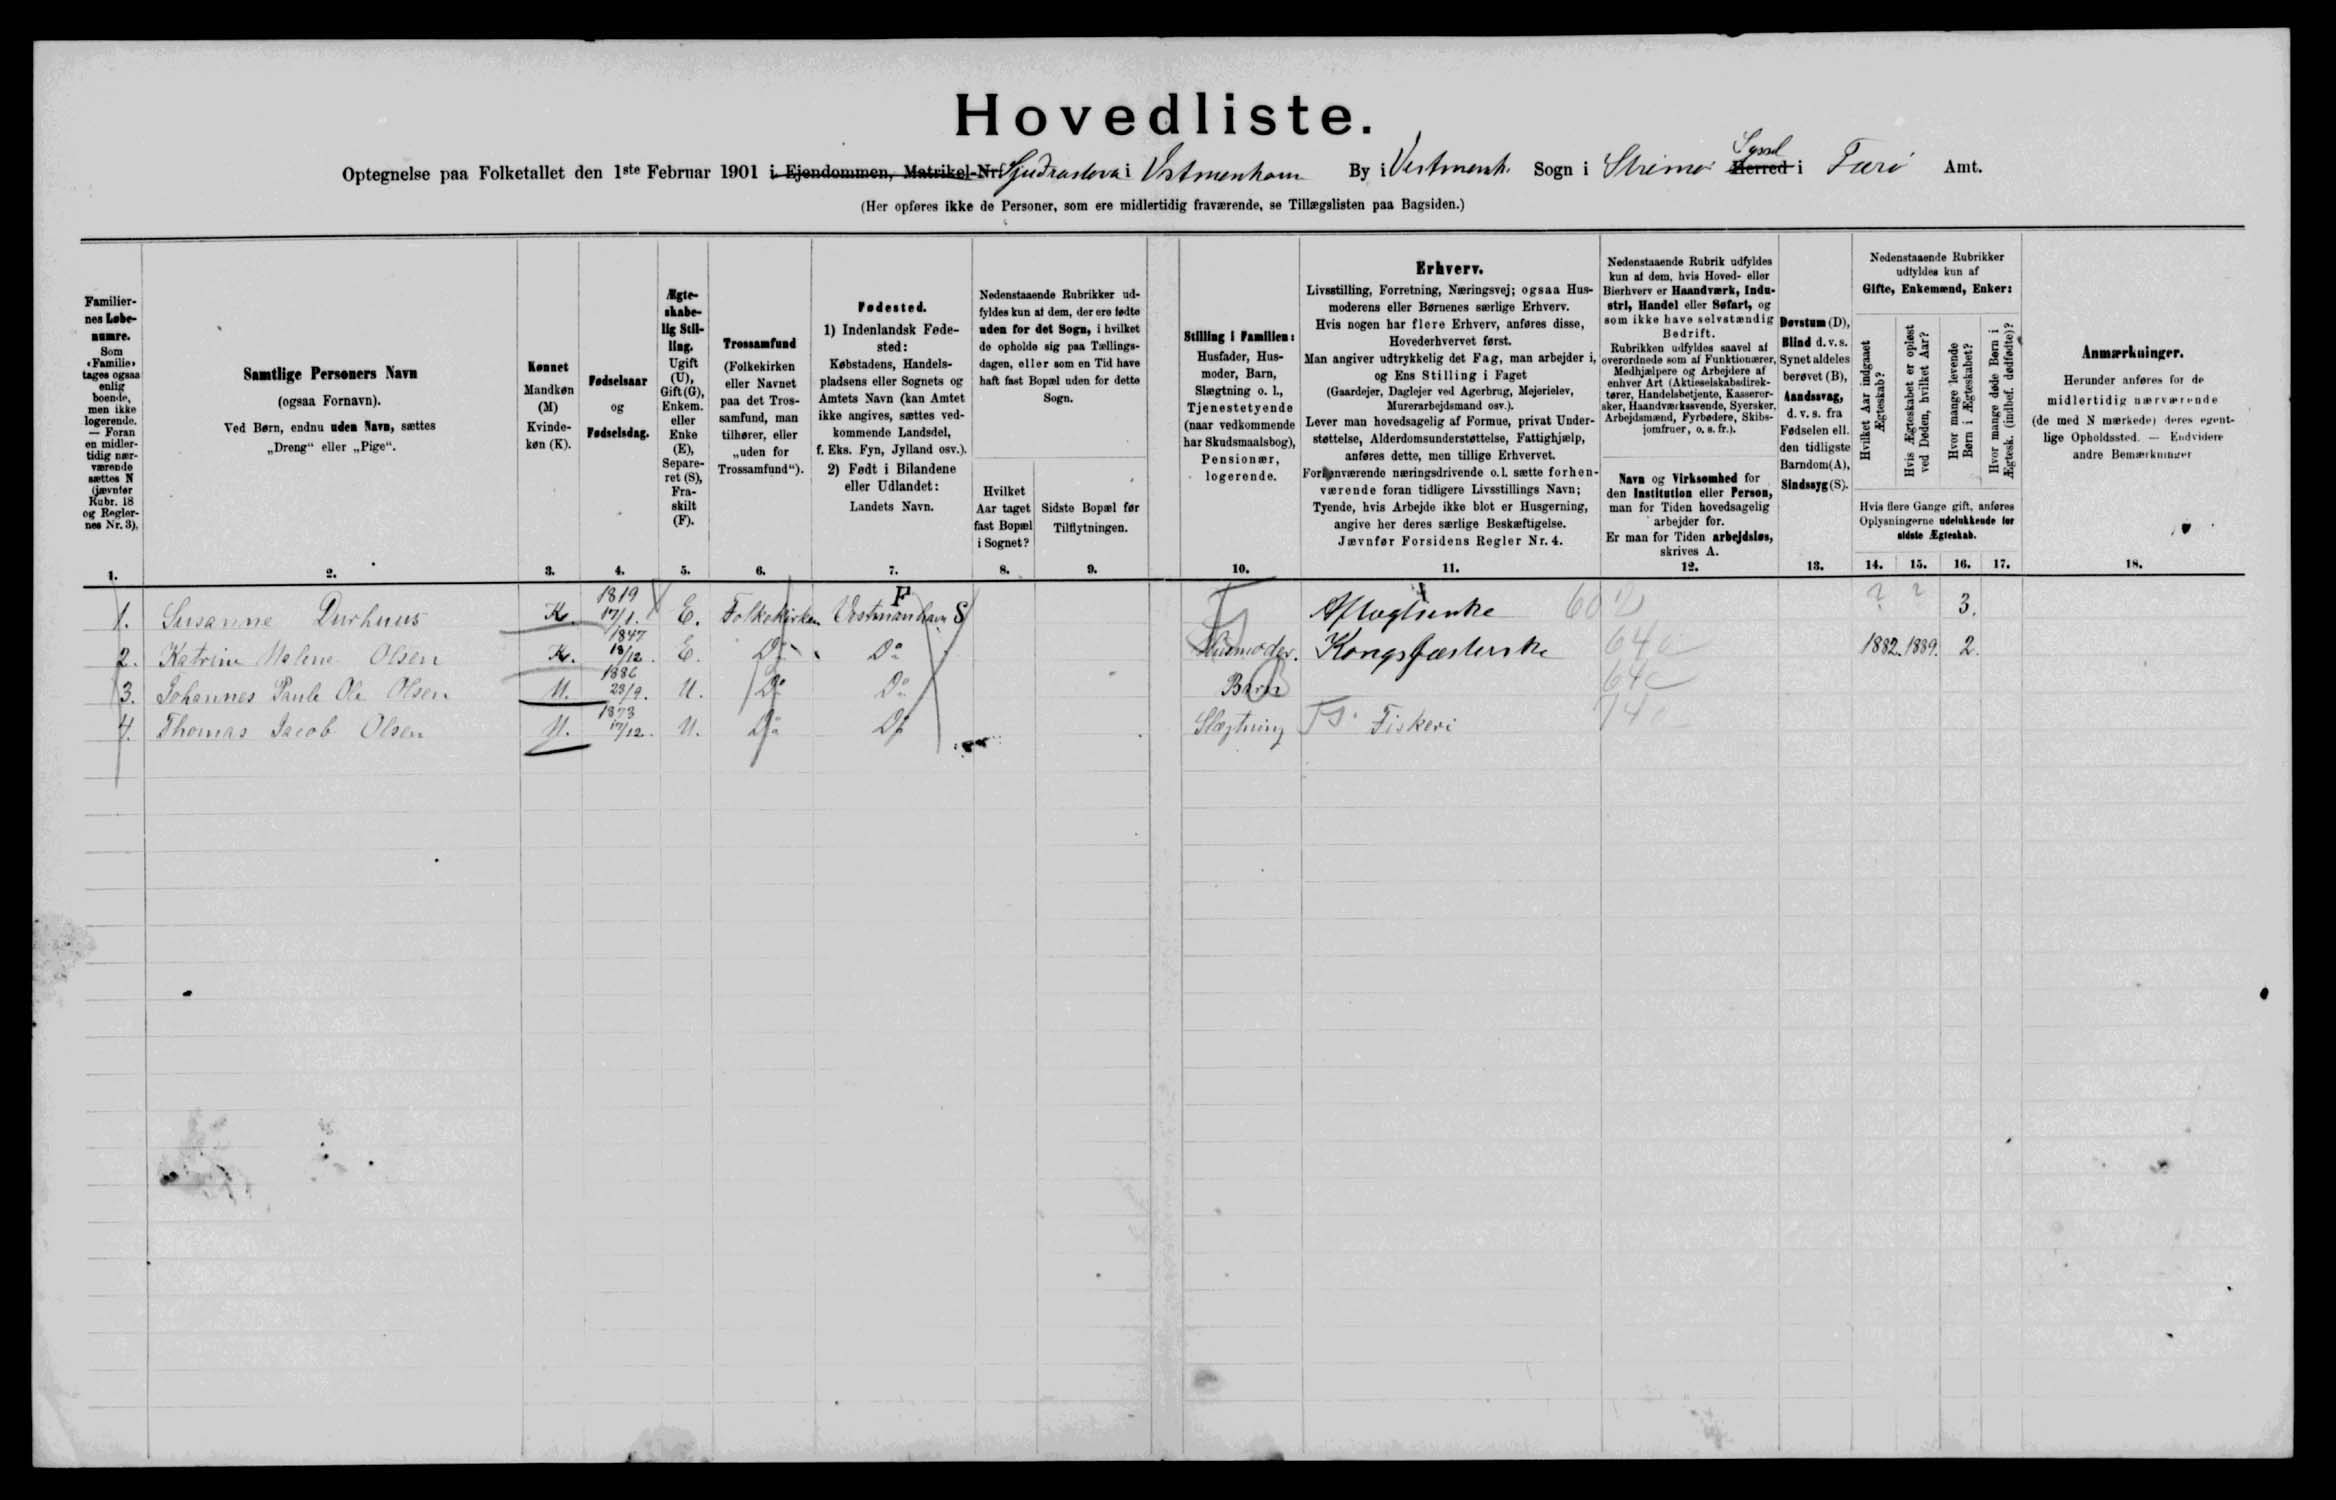 Hovedliste.
Optegnelse paa Folketallet den 1ste Februar 1901 i Ejendommen, Matrikel-Nr. i Vestmenhavn By i Vestmenh. Sogn i Strømø Syssel Herred i Færø Amt.
(Her opføres ikke de Personer, som ere midlertidig fraværende, se Tillægslisten paa Bagsiden.)
Familiernes Løbenumre.
Som «Familie» tages ogsaa enlig boende, men ikke logerende. — Foran en midlertidig nærværende sættes N (jævnfør Rubr. 18 og Reglernes Nr. 3).
1.
Samtlige Personers Navn
(ogsaa Fornavn).
Ved Børn, endnu uden Navn, sættes
„Dreng“ eller „Pige“.
2.
Kønnet
Mandkøn (M)
Kvindekøn (K).
3.
Fødselsaar
og
Fødselsdag.
4.
Ægteskabelig Stilling.
Ugift (U), Gift (G), Enkem. eller Enke (E), Separeret (S), Fraskilt (F).
5.
Trossamfund
(Folkekirken eller Navnet paa det Trossamfund, man tilhører, eller „uden for Trossamfund“).
6.
Fødested.
1) Indenlandsk Fødested:
Købstadens, Handelspladsens eller Sognets og Amtets Navn (kan Amtet ikke angives, sættes vedkommende Landsdel, f. Eks. Fyn, Jylland osv.).
2) Født i Bilandene eller Udlandet:
Landets Navn.
7.
Nedenstaaende Rubrikker udfyldes kun af dem, der ere fødte uden for det Sogn, i hvilket de opholde sig paa Tællingsdagen, eller som en Tid have haft fast Bopæl uden for dette Sogn.
Hvilket Aar taget fast Bopæl i Sognet?
8.
Sidste Bopæl før Tilflytningen.
9.
Stilling i Familien:
Husfader, Husmoder, Barn, Slægtning o. l., Tjenestetyende (naar vedkommende har Skudsmaalsbog), Pensionær, logerende.
10.
Erhverv.
Livsstilling, Forretning, Næringsvej; ogsaa Husmoderens eller Børnenes særlige Erhverv.
Hvis nogen har flere Erhverv, anføres disse, Hovederhvervet først.
Man angiver udtrykkelig det Fag, man arbejder i, og Ens Stilling i Faget
(Gaardejer, Daglejer ved Agerbrug, Mejerielev, Murerarbejdsmand osv.).
Lever man hovedsagelig af Formue, privat Understøttelse, Alderdomsunderstøttelse, Fattighjælp, anføres dette, men tillige Erhvervet.
Forhenværende næringsdrivende o. l. sætte forhenværende foran tidligere Livsstillings Navn;
Tyende, hvis Arbejde ikke blot er Husgerning, angive her deres særlige Beskæftigelse.
Jævnfør Forsidens Regler Nr. 4.
11.
Nedenstaaende Rubrik udfyldes kun af dem, hvis Hoved- eller Bierhverv er Haandværk, Industri, Handel eller Søfart, og som ikke have selvstændig Bedrift.
Rubrikken udfyldes saavel af overordnede som af Funktionærer, Medhjælpere og Arbejdere af enhver Art (Aktieselskabsdirektører, Handelsbetjente, Kasserersker, Haandværkssvende, Syersker, Arbejdsmænd, Fyrbødere, Skibsjomfruer, o. s. fr.).
Navn og Virksomhed for den Institution eller Person, man for Tiden hovedsagelig arbejder for.
Er man for Tiden arbejdsløs, skrives A.
12.
Døvstum (D),
Blind d. v. s. Synet aldeles berøvet (B),
Aandssvag, d. v. s. fra Fødselen ell. den tidligste Barndom (A),
Sindssyg (S).
13.
Nedenstaaende Rubrikker udfyldes kun af
Gifte, Enkemænd, Enker:
Hvilket Aar indgaaet Ægteskab?
Hvis Ægteskabet er opløst ved Døden, hvilket Aar?
Hvor mange levende Børn i Ægteskabet?
Hvor mange døde Børn i Ægtesk. (indbef. dødfødte)?
Hvis flere Gange gift, anføres Oplysningerne udelukkende for sidste Ægteskab.
14. 15. 16. 17.
Anmærkninger.
Herunder anføres for de midlertidig nærværende (de med N mærkede) deres egentlige Opholdssted. — Endvidere andre Bemærkninger
18.
1. Susanne Durhuus K. 1819 17/1. E. Folkekirken Vestmanhavn F S Aftægtsenke ? ? 3.
2. Katrine Malene Olsen K. 1847 18/12. E. Do Do Husmoder. Kongsfæsterske 64a 1882. 1889. 2.
3. Johannes Paule Ole Olsen M. 1886 23/9. U. Do Do Barn 64c
4. Thomas Jacob Olsen M. 1873 17/12. U. Do Do Slægtning Fiskeri 74